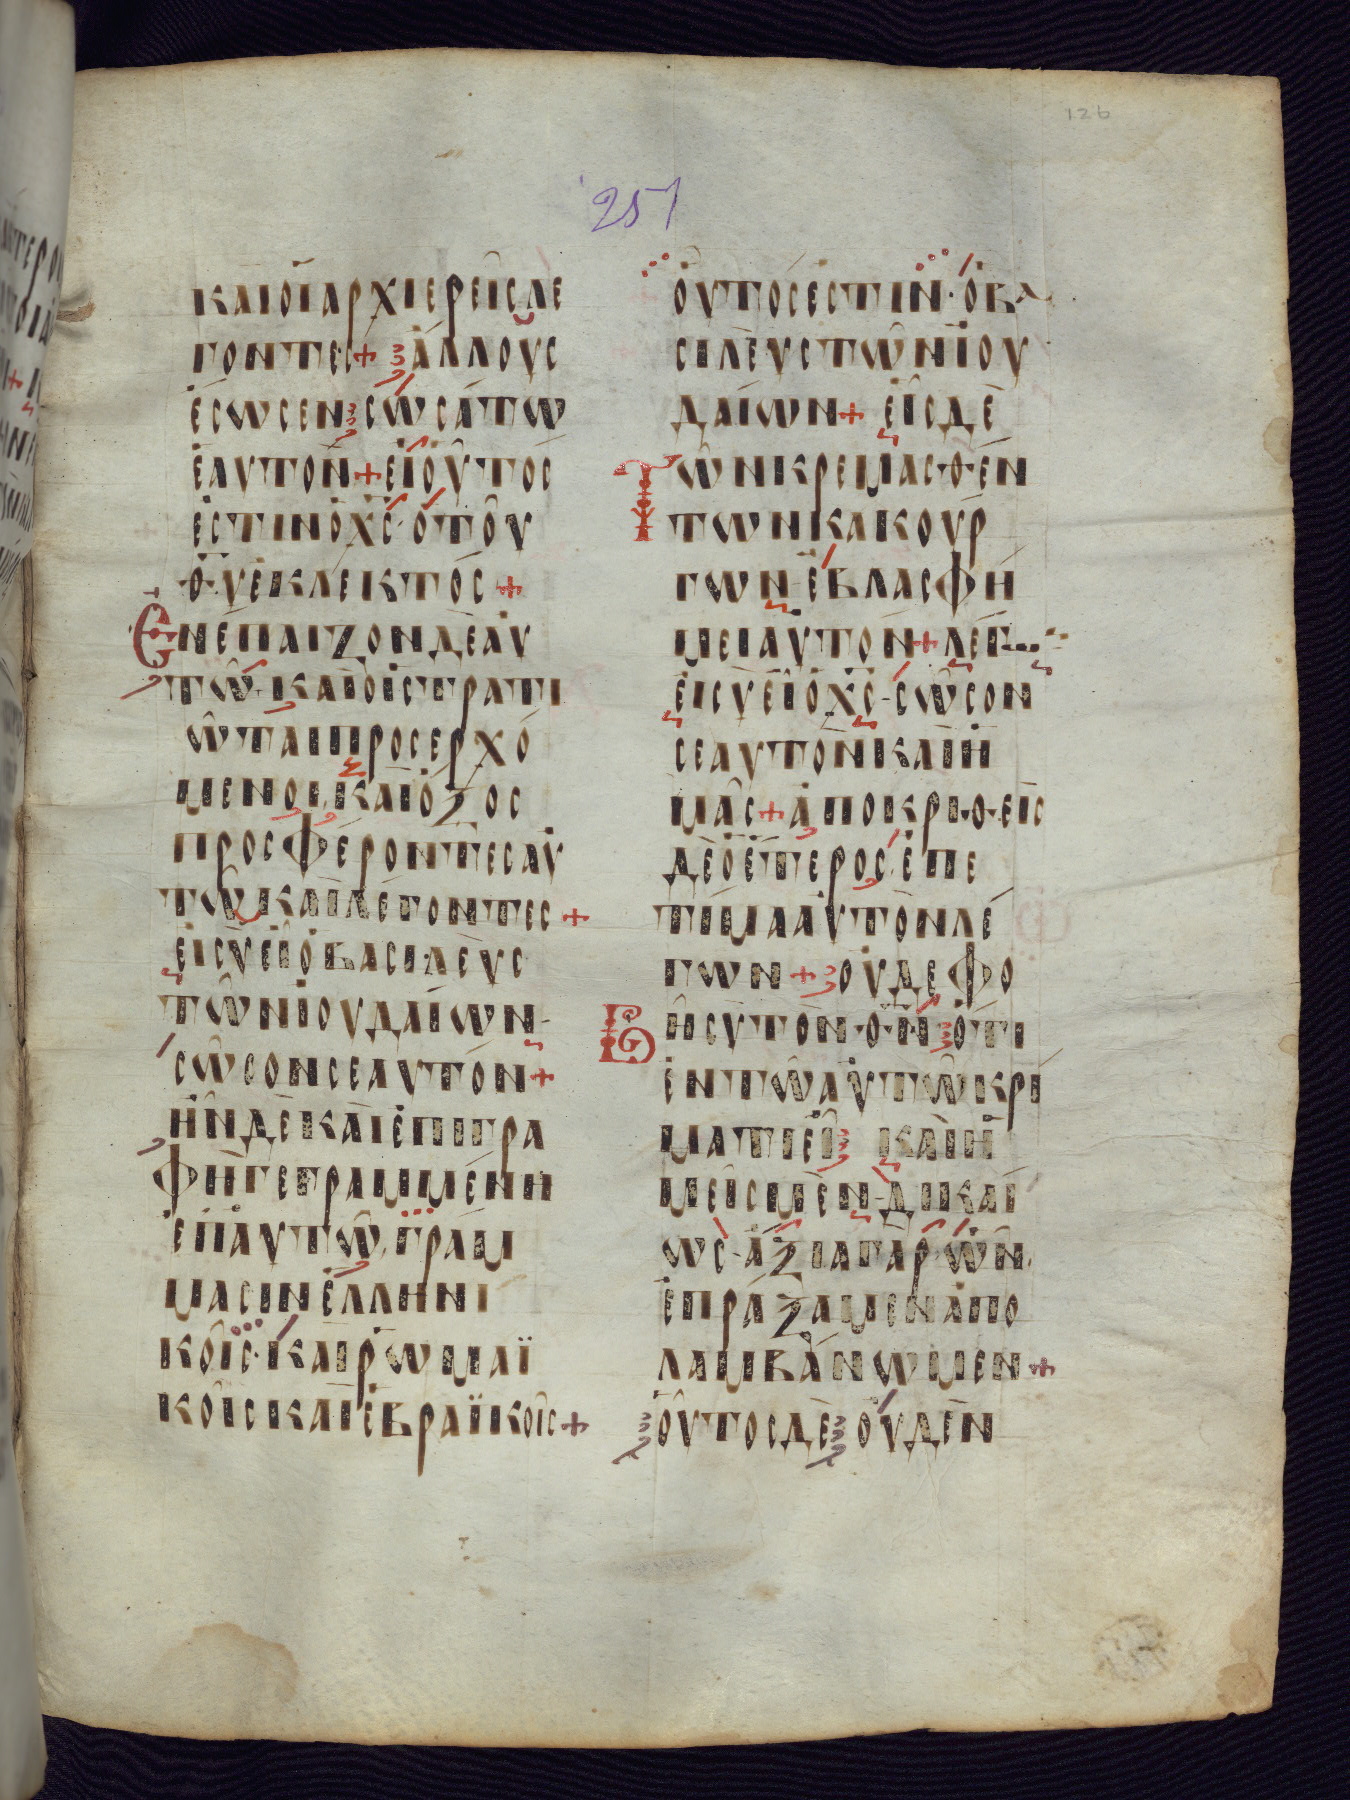 126
251
ΚΑΙ ΟΙ ΑΡΧΙΕΡΕΙΣ ΛΕ
ΓΟΝΤΕΣ + ΑΛΛΟΥΣ
ΕΣΩΣΕΝ ΣΩΣΑΤΩ
ΕΑΥΤΟΝ + ΕΙ ΟΥΤΟΣ
ΕΣΤΙΝ Ο ΧΣ · Ο ΤΟΥ
ΘΥ ΕΚΛΕΚΤΟΣ +
ΕΝΕΠΑΙΖΟΝ ΔΕ ΑΥ
ΤΩ · ΚΑΙ ΟΙ ΣΤΡΑΤΙ
ΩΤΑΙ ΠΡΟΣΕΡΧΟ
ΜΕΝΟΙ, ΚΑΙ ΟΞΟΣ
ΠΡΟΣΦΕΡΟΝΤΕΣ ΑΥ
ΤΩ ΚΑΙ ΛΕΓΟΝΤΕΣ +
ΕΙ ΣΥ ΕΙ Ο ΒΑΣΙΛΕΥΣ
ΤΩΝ ΙΟΥΔΑΙΩΝ ·
ΣΩΣΟΝ ΣΕΑΥΤΟΝ +
ΗΝ ΔΕ ΚΑΙ ΕΠΙΓΡΑ
ΦΗ ΓΕΓΡΑΜΜΕΝΗ
ΕΠ ΑΥΤΩ, ΓΡΑΜ
ΜΑΣΙΝ ΕΛΛΗΝΙ
ΚΟΙΣ · ΚΑΙ ΡΩΜΑΪ
ΚΟΙΣ ΚΑΙ ΕΒΡΑΪΚΟΙΣ +
ΟΥΤΟΣ ΕΣΤΙΝ · Ο ΒΑ
ΣΙΛΕΥΣ ΤΩΝ ΙΟΥ
ΔΑΙΩΝ + ΕΙΣ ΔΕ
ΤΩΝ ΚΡΕΜΑΣΘΕΝ
ΤΩΝ ΚΑΚΟΥΡ
ΓΩΝ ΕΒΛΑΣΦΗ
ΜΕΙ ΑΥΤΟΝ + ΛΕΓ
ΕΙ ΣΥ ΕΙ Ο ΧΣ · ΣΩΣΟΝ
ΣΕΑΥΤΟΝ ΚΑΙ Η
ΜΑΣ + ΑΠΟΚΡΙΘΕΙΣ
ΔΕ Ο ΕΤΕΡΟΣ ΕΠΕ
ΤΙΜΑ ΑΥΤΟΝ ΛΕ
ΓΩΝ + ΟΥΔΕ ΦΟ
ΒΗ ΣΥ ΤΟΝ ΘΝ ΟΤΙ
ΕΝ ΤΩ ΑΥΤΩ ΚΡΙ
ΜΑΤΙ ΕΙ ΚΑΙ Η
ΜΕΙΣ ΜΕΝ · ΔΙΚΑΙ
ΩΣ · ΑΞΙΑ ΓΑΡ ΩΝ
ΕΠΡΑΞΑΜΕΝ ΑΠΟ
ΛΑΜΒΑΝΩΜΕΝ +
ΟΥΤΟΣ ΔΕ ΟΥΔΕΝ